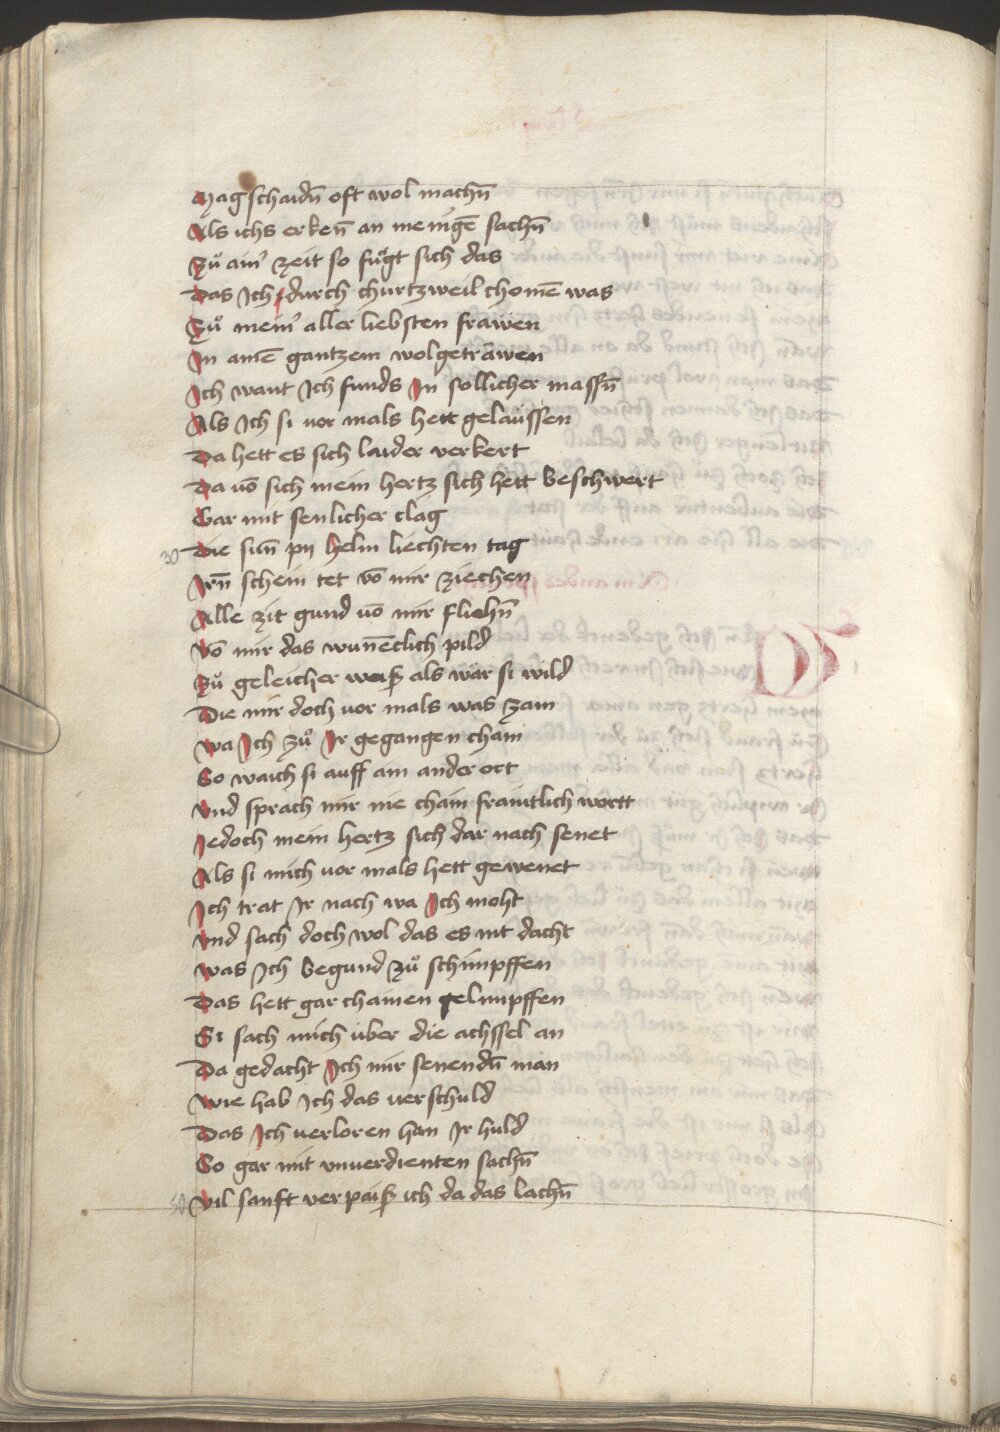 Mag schaidn̄ oft wol machn̄
Als ichs erken̄ an menigē sachn̄
Zuͦ ainˀ zeit so fuͤgt sich das
Das Ich durch churtzweil chomē was
Zuͦ meinˀ aller liebsten frawen
In ainē gantzem wolgetrawen
Ich want Ich funds In sollicher massn̄
Als Ich si vor mals hett gelaussen
Da hett es sich laider verkert
Da vō sich mein hertz sich hett beschwert
Gar mit senlicher clag
30 Die sun̄ py helm liechten tag
Irn̄ schein tet vō mir ziechen
Alle zit gund vō mir fliehn̄
Vō mir das wun̄eclich pild
Zuͦ geleicher weiß als wär si wild
Die mir doch vor mals was zam
Wa Ich zuͦ Ir gegangen cham
So waich si auff am ander ort
Vnd sprach mir nie chain frauntlich wortt
Iedoch mein hertz sich dar nach senet
Als si mich vor mals hett gewenet
Ich trat Ir nach wa Ich moht
Vnd sach doch wol das es nit dacht
Was Ich begund zuͦ schimpffen
Das hett gar chainen gelimpffen
Si sach mich über die achssel an
Da gedacht Ich mir senendn̄ man
Wie hab Ich das verschuld
Das Ich verloren han Ir huld
So gar mit vnverdienten sachn̄
50 Vil sanft verpaiß ich da das lachn̄